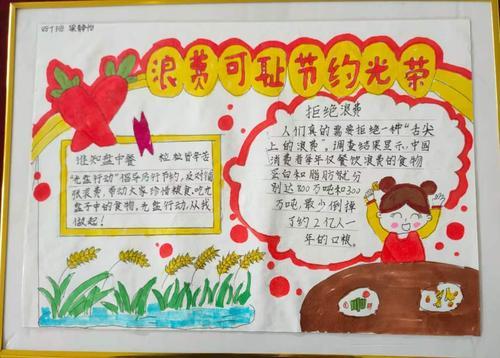 浪费可耻节约光荣
谁知盘中餐 粒粒皆辛苦
"光盘行动"倡导厉行节约,反对铺
张浪费,带动大家珍惜粮食,吃光
盘子中的食物,光盘行动,从我
做起!
拒绝浪费
人们真的需要拒绝一种"舌尖
上的浪费",调查结果显示,中国
消费者每年仅餐饮浪费的食物
蛋白和脂肪就分
别达800万吨和300
万吨,最少倒掉
了约2亿人一
年的口粮。